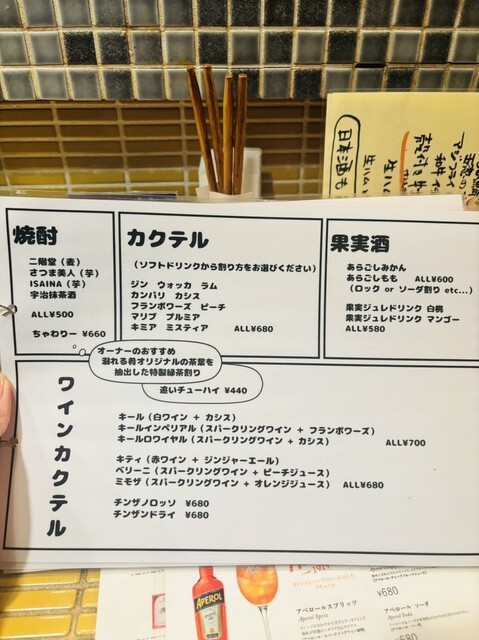 焼酎
二階堂（麦）
さつま美人（芋）
ISAINA（芋）
宇治抹茶酒
ALL¥500
ちゃわりー ¥660
カクテル
（ソフトドリンクから割り方をお選びください）
ジン ウォッカ ラム
カンパリ カシス
フランボワーズ ピーチ
マリブ プルミア
キミア ミスティア ALL¥680
果実酒
あらごしみかん
あらごしもも ALL¥600
（ロック or ソーダ割り etc...）
果実ジュレドリンク 白桃
果実ジュレドリンク マンゴー
ALL¥580
オーナーのおすすめ
溺れる肴オリジナルの茶葉を
抽出した特製緑茶割り
追いチューハイ ¥440
ワインカクテル
キール（白ワイン + カシス）
キールインペリアル（スパークリングワイン + フランボワーズ）
キールロワイヤル（スパークリングワイン + カシス） ALL¥700
キティ（赤ワイン + ジンジャーエール）
ベリーニ（スパークリングワイン + ピーチジュース）
ミモザ（スパークリングワイン + オレンジジュース） ALL¥680
チンザノロッソ ¥680
チンザンドライ ¥680
日本酒も
APEROL
アペロールスプリッツ
Aperol Spritz
¥680
アペロール ソーダ
Aperol Soda